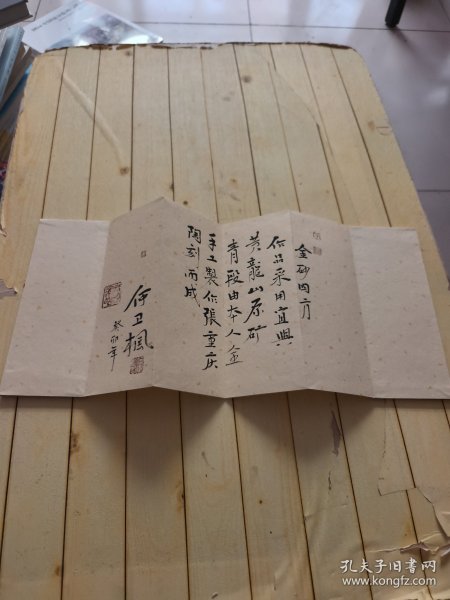 金砂四方
作品采用宜興
黃龍山原矿
青段由本人全
手工製作張重庆
陶刻而成
何卫楓
癸卯年
孔夫子旧书网
www.kongfz.com